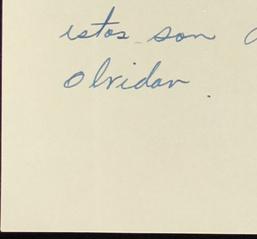 estos son
olvidar.